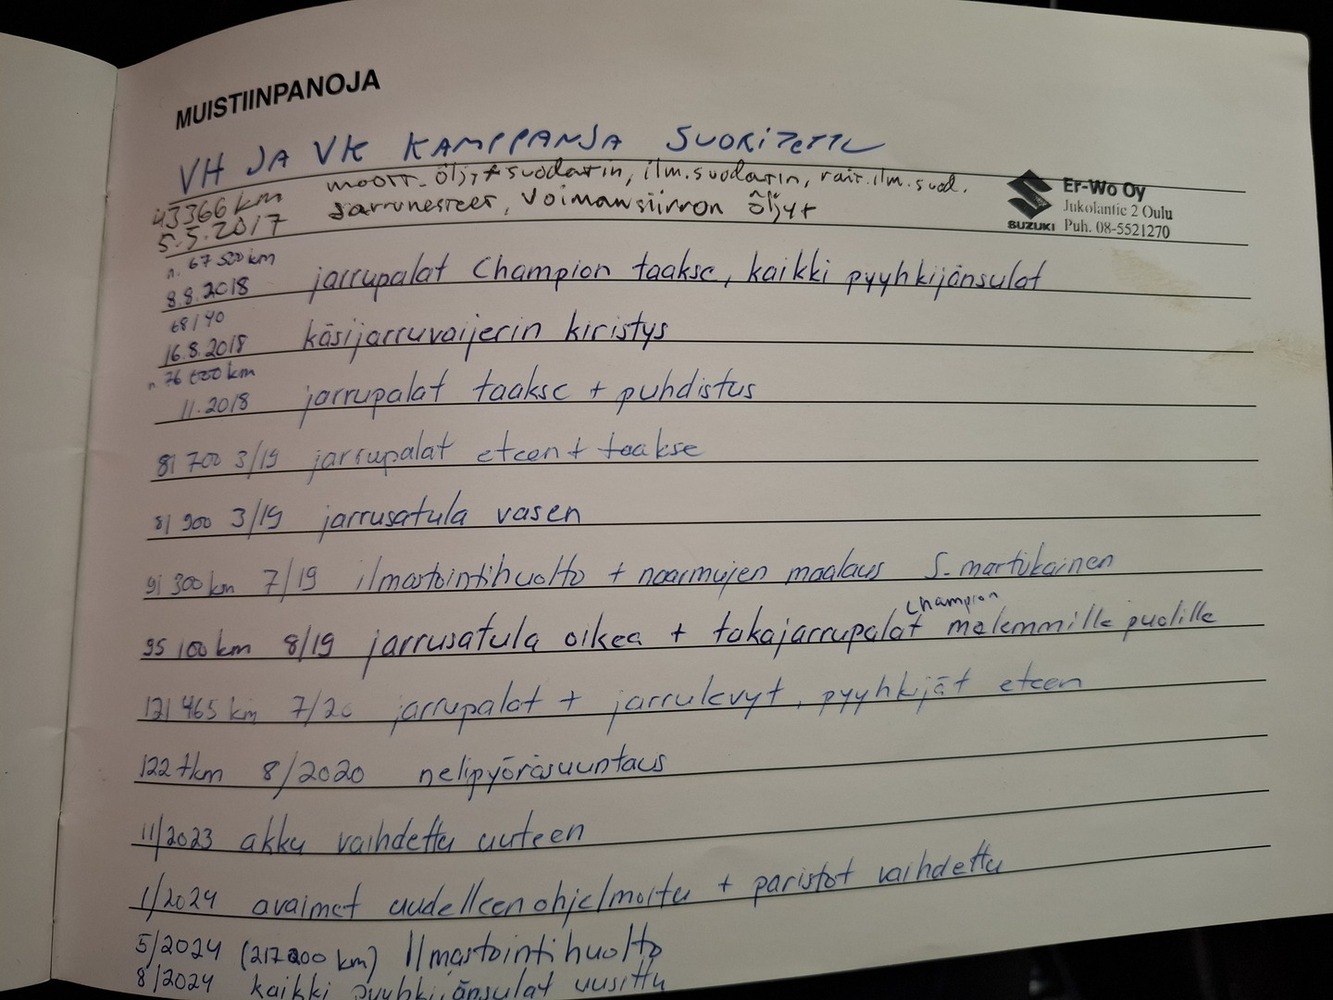 MUISTIINPANOJA
VH JA VK KAMPPANJA SUORITETTU
43366 km moott. öljyt+suodatin, ilm.suodatin, rait.ilm.suod.
5.5.2017 Jarrunesteet, Voimansiirron öljyt
SUZUKI
Er-Wo Oy
Jukolantie 2 Oulu
Puh. 08-5521270
n. 67 500 km
8.8.2018 jarrupalat Champion taakse, kaikki pyyhkijänsulat
68140
16.8.2018 käsijarruvaijerin kiristys
n. 76 000 km
11.2018 jarrupalat taakse + puhdistus
81 700 3/19 jarrupalat eteen + taakse
81 900 3/19 jarrusatula vasen
91 300 km 7/19 ilmastointihuolto + naarmujen maalaus S. Martikainen
champion
95 100 km 8/19 jarrusatula oikea + takajarrupalat molemmille puolille
121 465 km 7/20 jarrupalat + jarrulevyt, pyyhkijät eteen
122 tkm 8/2020 nelipyöräsuuntaus
11/2023 akku vaihdettu uuteen
1/2024 avaimet uudelleenohjelmoitu + paristot vaihdettu
5/2024 (217 200 km) Ilmastointihuolto
8/2024 kaikki pyyhkijänsulat uusittu